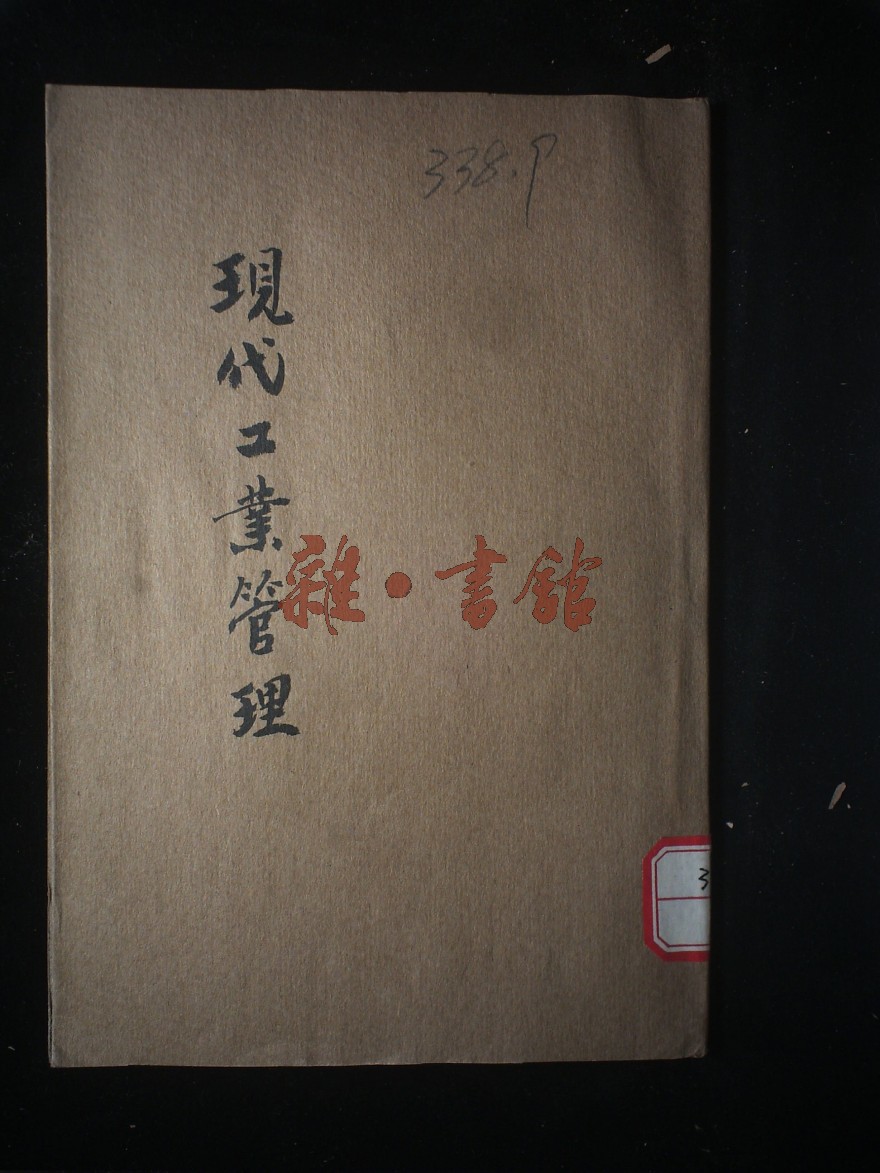 338.9
現代工業管理
雜·書館
3